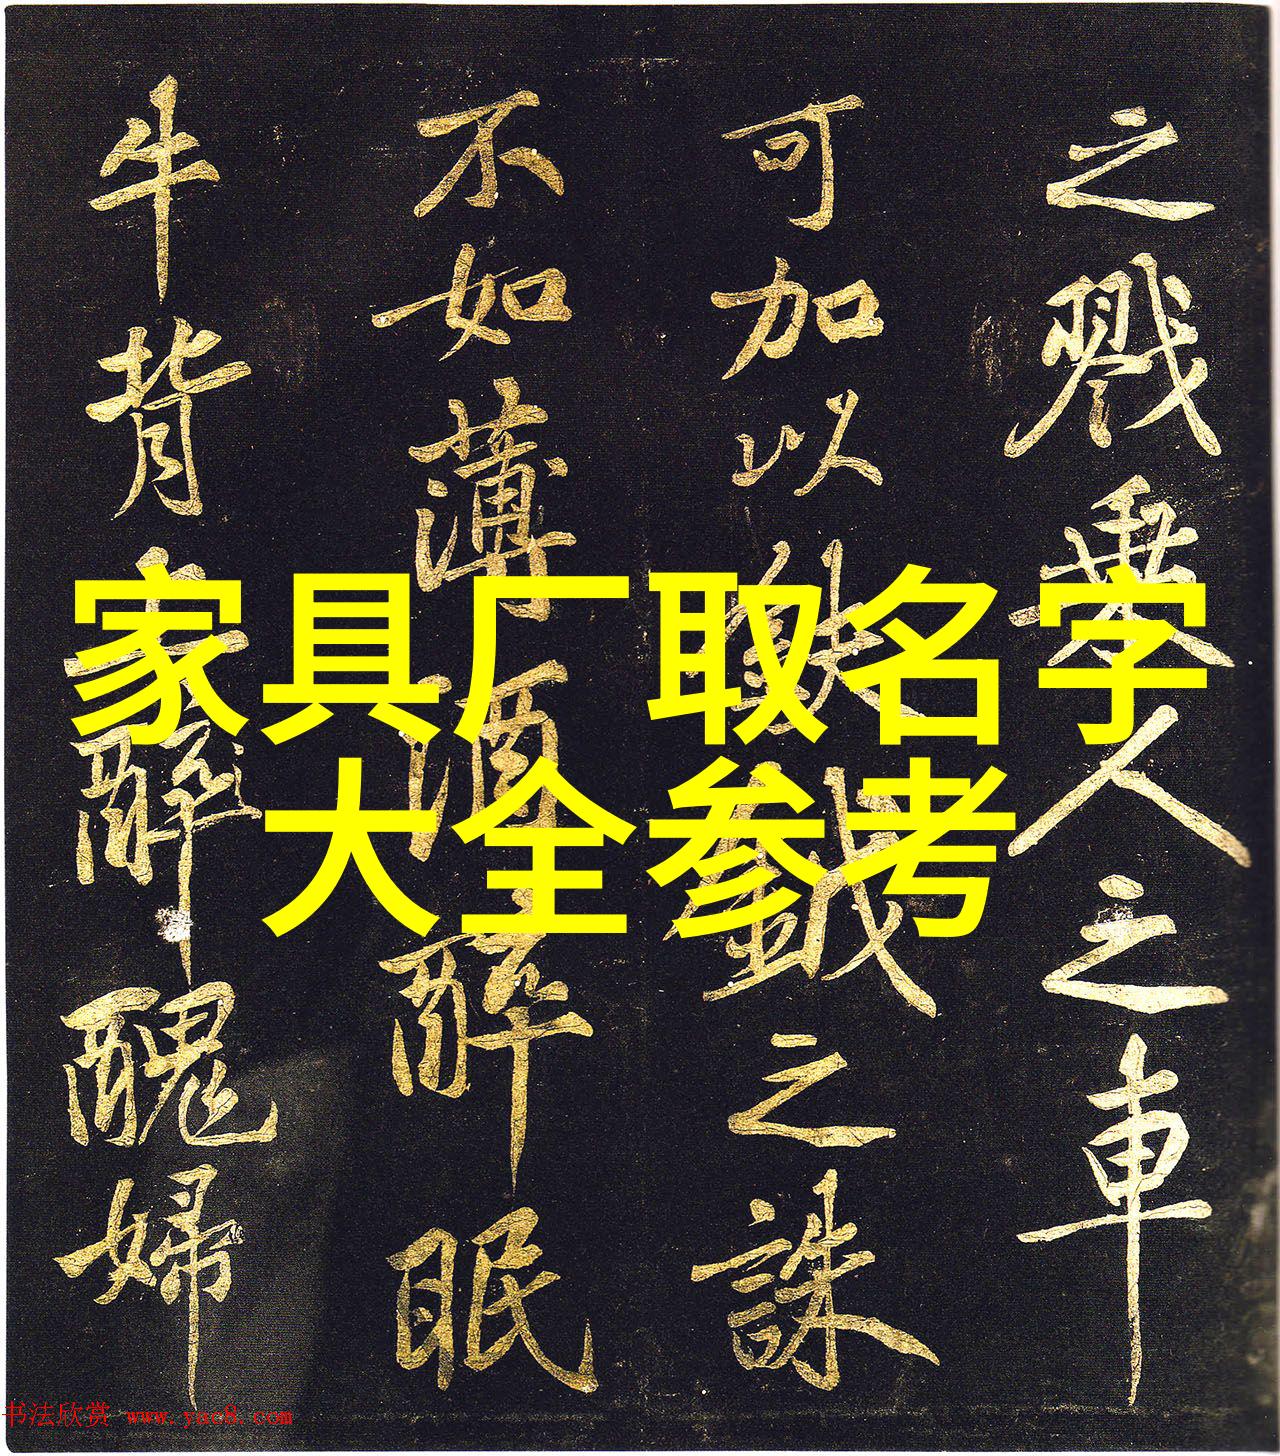 之戮乘人之車
可加以鈇鉞之誅
不如薄酒醉眠
牛背上醉醜婦
家具厂取名字
大全参考
书法欣赏 www.yac8.com